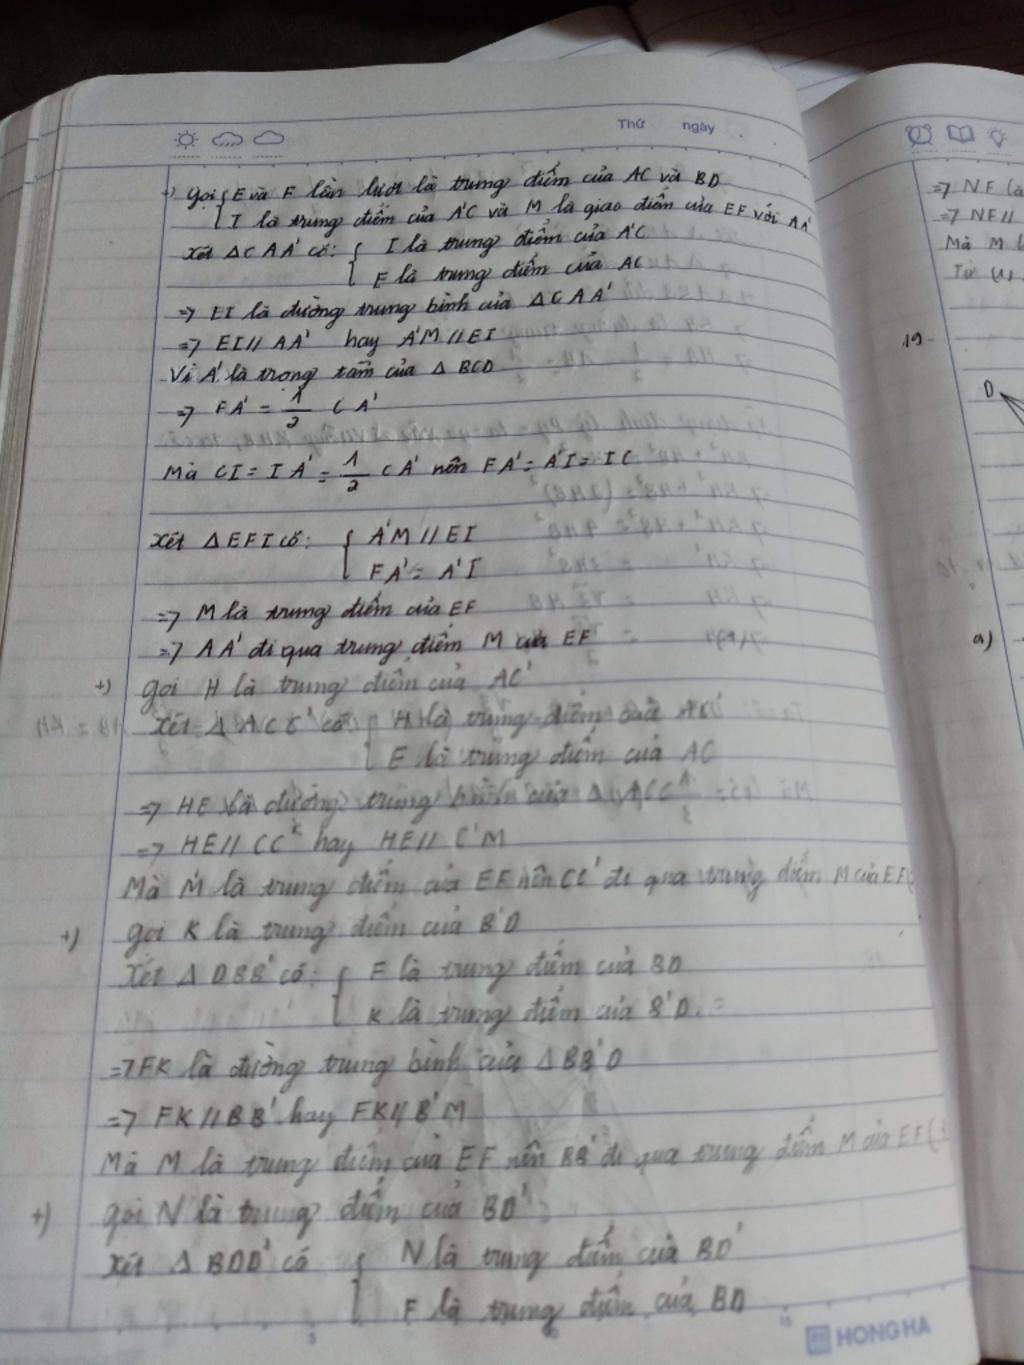 Thứ ngày
+) Gọi { E và F lần lượt là trung điểm của AC và BD
I là trung điểm của A'C và M là giao điểm của EF với AA'
Xét ΔCAA' có: { I là trung điểm của A'C
E là trung điểm của AC
=> EI là đường trung bình của ΔCAA'
=> EI // AA' hay A'M // EI
Vì A' là trọng tâm của Δ BCD
=> FA' = 1/2 CA'
Mà CI = IA' = 1/2 CA' nên FA' = A'I = IC
Xét ΔEFI có: { A'M // EI
FA' = A'I
=> M là trung điểm của EF
=> AA' đi qua trung điểm M của EF
+) Gọi H là trung điểm của AC'
Xét Δ ACC' có { H là trung điểm của AC'
E là trung điểm của AC
=> HE là đường trung bình của Δ ACC'
=> HE // CC' hay HE // C'M
Mà M là trung điểm của EF nên CC' đi qua trung điểm M của EF
+) Gọi K là trung điểm của B'D
Xét Δ DBB' có: { F là trung điểm của BD
K là trung điểm của B'D.
=> FK là đường trung bình của ΔBB'D
=> FK // BB' hay FK // B'M
Mà M là trung điểm của EF nên BB' đi qua trung điểm M của EF
+) Gọi N là trung điểm của BD'
Xét Δ BDD' có { N là trung điểm của BD'
F là trung điểm của BD
HONG HA
=> NF là
=> NF //
Mà M
Từ (1)
19.
D
a)